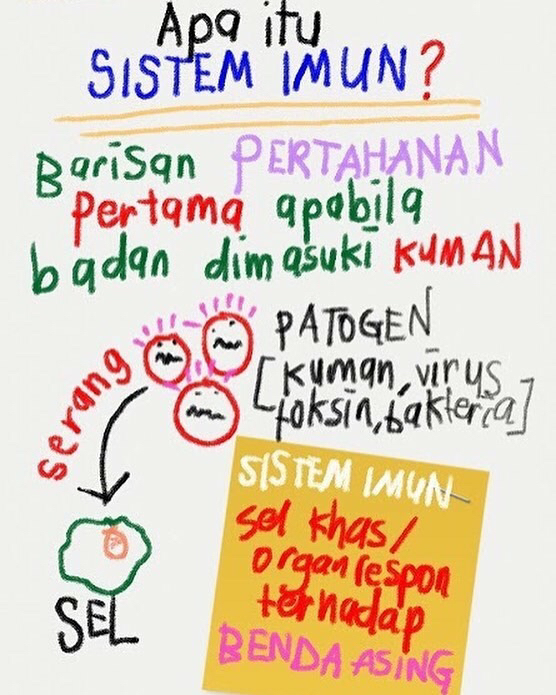 Apa itu
SISTEM IMUN?
Barisan PERTAHANAN
Pertama apabila
badan dimasuki KUMAN
PATOGEN
[kuman, virus
toksin, bakteria]
serang
SEL
SISTEM IMUN
sel khas/
organ respon
terhadap
BENDA ASING